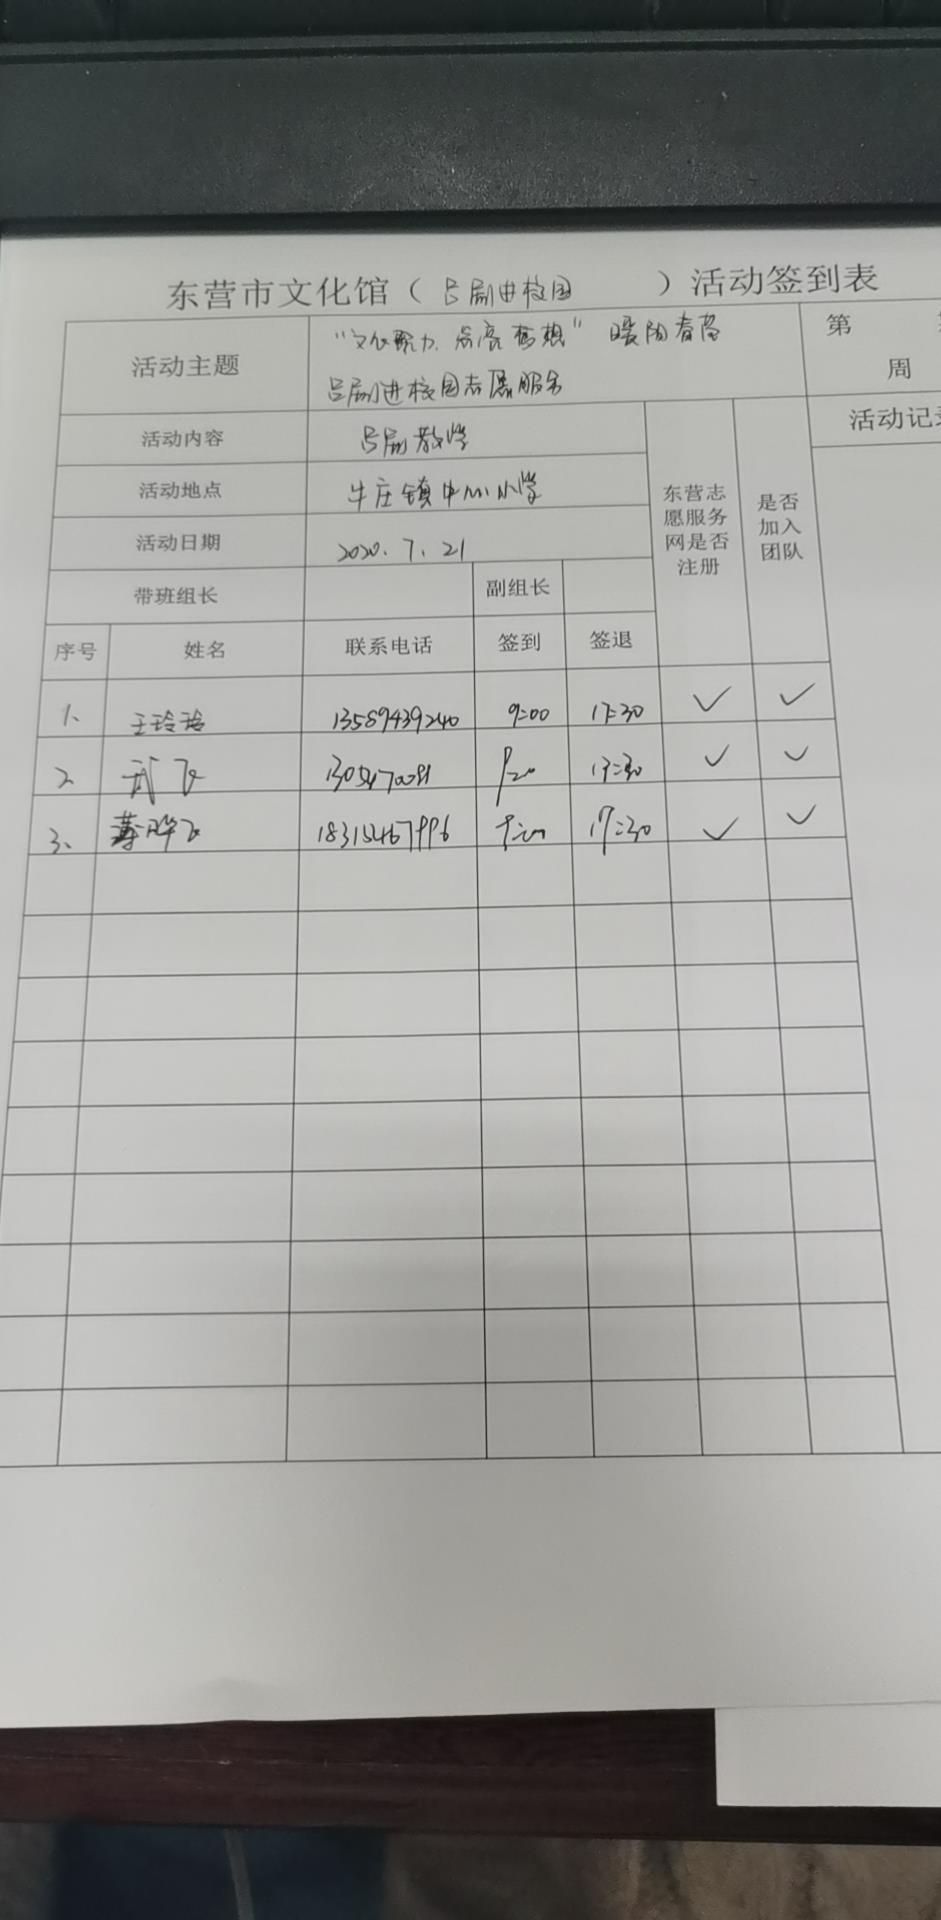 东营市文化馆（吕剧进校园）活动签到表
活动主题
"文化聚力、点亮梦想" 暖阳春苗
吕剧进校园志愿服务
第
周
活动内容 吕剧教学
活动记录
活动地点 牛庄镇中心小学
活动日期 2020.7.21
东营志愿服务网是否注册
是否加入团队
带班组长 副组长
序号 姓名 联系电话 签到 签退
1、 王玲玲 13589439240 9:00 17:30 ✓ ✓
2 武飞 17:30 ✓ ✓
3、 18315467996 9:00 17:30 ✓ ✓